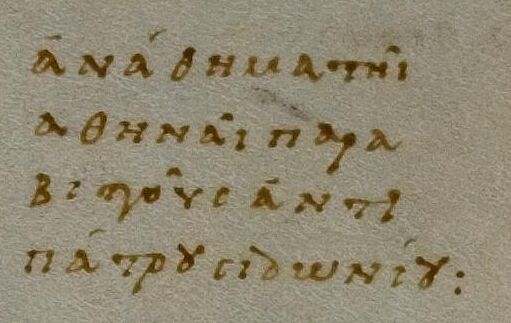 ἀνάθημα τῆι
ἀθηνᾶι παρα
βιττοῦς ἀντι
πάτρου σιδωνίου: